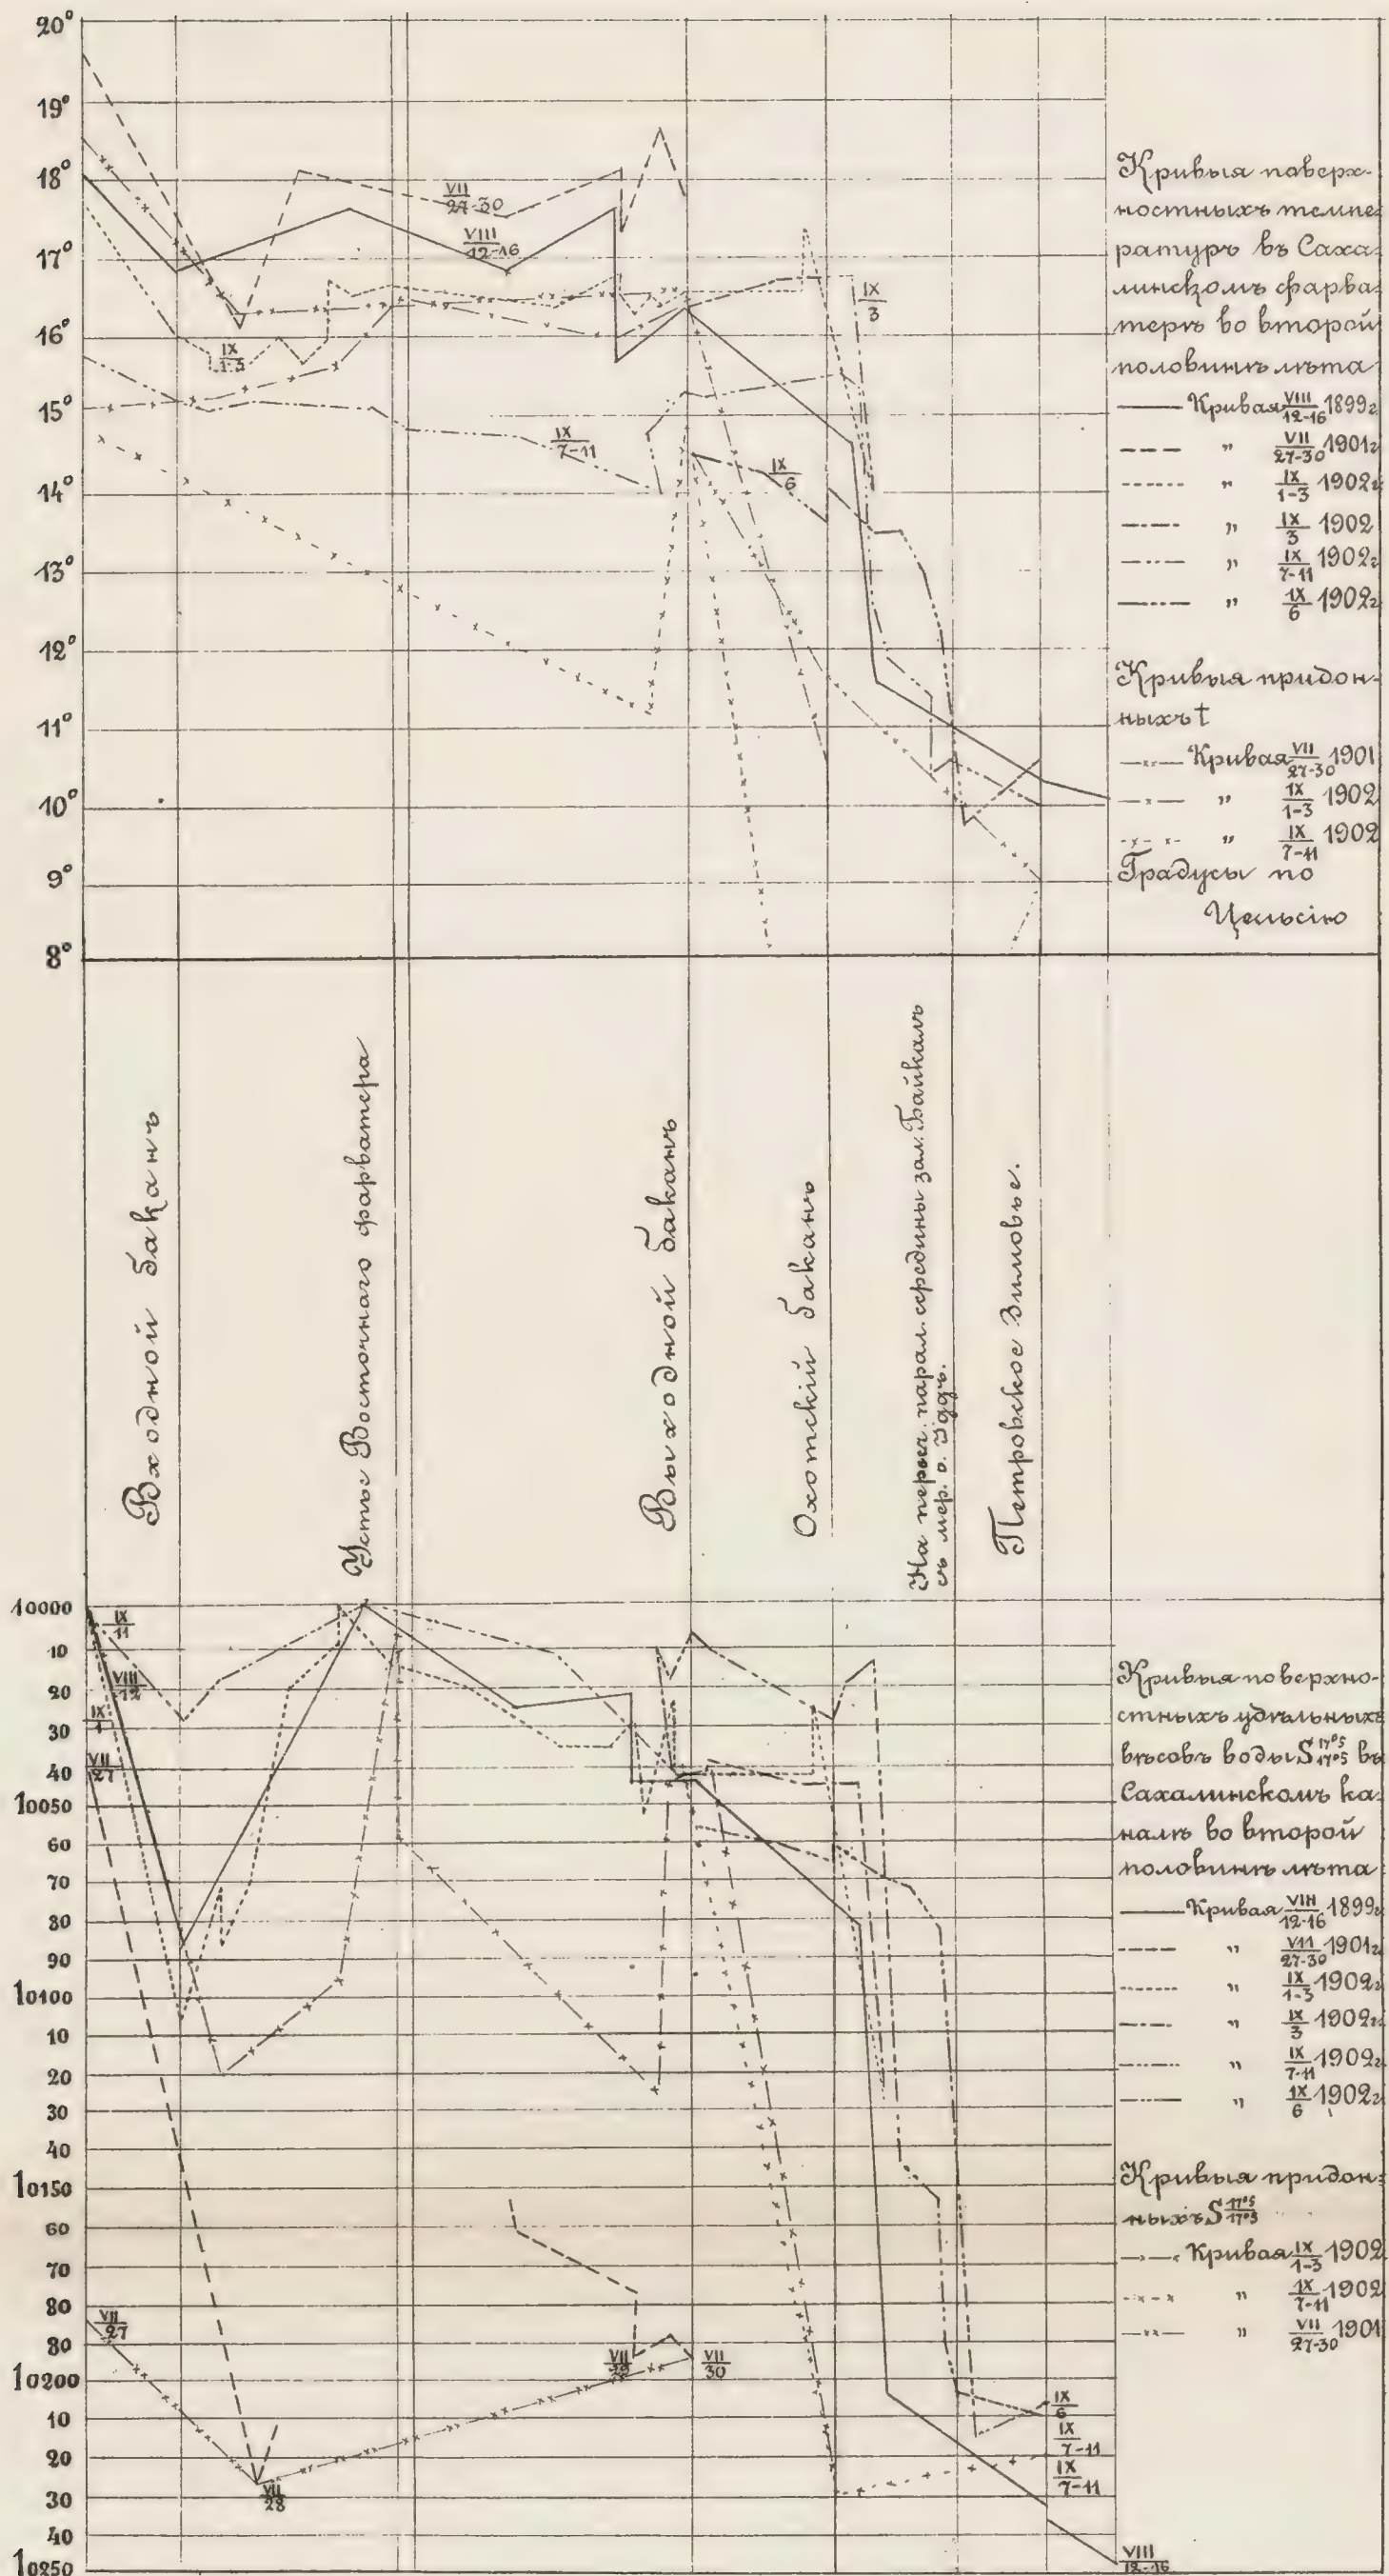 20°
19°
18°
17°
16°
15°
14°
13°
12°
11°
10°
9°
8°
VII
27-30
VIII
12-16
IX
1-3
IX
3
IX
7-11
IX
6
Кривыя поверх-
ностныхъ темпе-
ратуръ въ Саха-
линскомъ фарва-
терѣ во второй
половинѣ лѣта
Кривая VIII/12-16 1899г
" VII/27-30 1901г
" IX/1-3 1902г
" IX/3 1902
" IX/7-11 1902г
" IX/6 1902г
Кривыя придон-
ныхъ t
Кривая VII/27-30 1901
" IX/1-3 1902
" IX/7-11 1902
Градусы по
Цельсію
Входной баканъ
Устье Восточнаго фарватера
Выходной баканъ
Охотскій баканъ
На перес. парал. середины зал. Байкалъ
съ мер. о. Уддъ.
Петровское Зимовье.
10000
10
20
30
40
10050
60
70
80
90
10100
10
20
30
40
10150
60
70
80
80
10200
10
20
30
40
10250
IX
11
VIII
12
IX
1
VII
27
VII
27
VII
28
VII
29
VII
30
IX
6
IX
7-11
IX
7-11
VIII
12-16
Кривыя поверхно-
стныхъ удѣльныхъ
вѣсовъ воды S 17°5/17°5 въ
Сахалинскомъ ка-
налѣ во второй
половинѣ лѣта
Кривая VIII/12-16 1899г
" VII/27-30 1901г
" IX/1-3 1902г
" IX/3 1902г
" IX/7-11 1902г
" IX/6 1902г
Кривыя придон-
ныхъ S 17°5/17°5
Кривая IX/1-3 1902
" IX/7-11 1902
" VII/27-30 1901